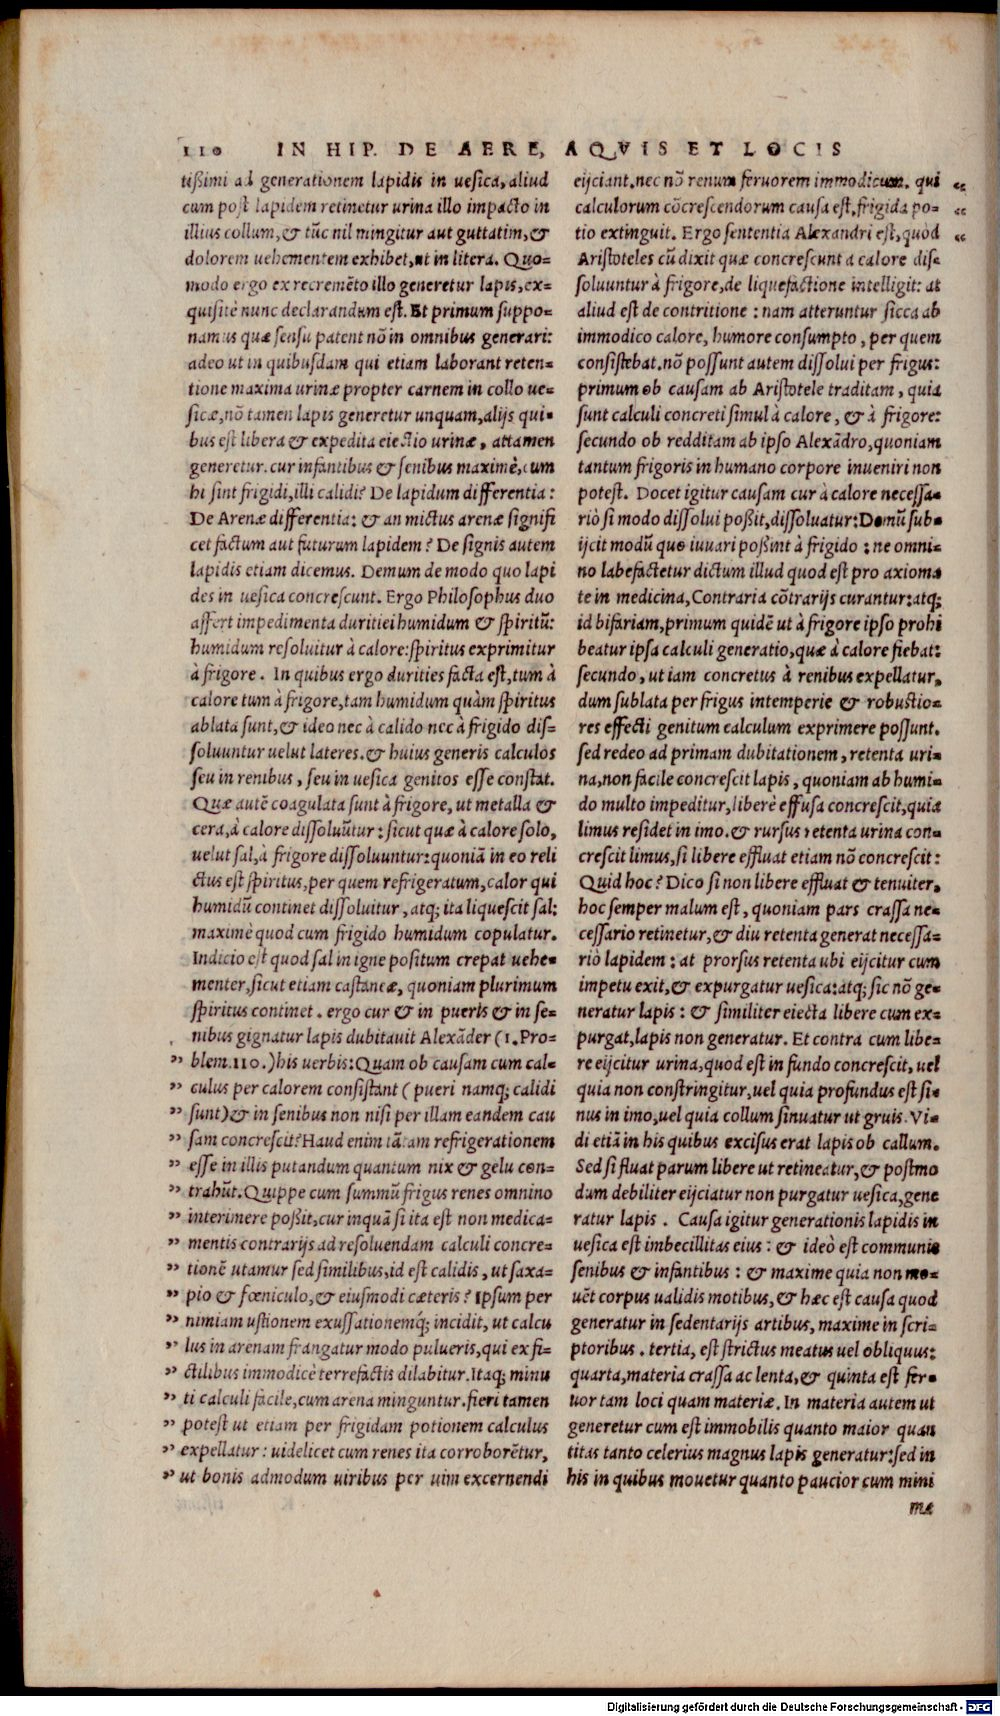 110 IN HIP. DE AERE, AQVIS ET LOCIS
tißimi ad generationem lapidis in uesica, aliud
cum post lapidem retinetur urina illo impacto in
illius collum, & tũc nil mingitur aut guttatim, &
dolorem uehementem exhibet, ut in litera. Quo-
modo ergo ex recremẽto illo generetur lapis, ex-
quisitè nunc declarandum est. Et primum suppo-
namus quæ sensu patent nõ in omnibus generari:
adeo ut in quibusdam qui etiam laborant reten-
tione maxima urinæ propter carnem in collo ue-
sicæ, nõ tamen lapis generetur unquam, alijs qui-
bus est libera & expedita eiectio urinæ, attamen
generetur. cur infantibus & senibus maximè, cum
hi sint frigidi, illi calidi? De lapidum differentia:
De Arenæ differentia: & an mictus arenæ signifi
cet factum aut futurum lapidem? De signis autem
lapidis etiam dicemus. Demum de modo quo lapi
des in uesica concrescunt. Ergo Philosophus duo
affert impedimenta duritiei humidum & spiritũ:
humidum resoluitur à calore: spiritus exprimitur
à frigore. In quibus ergo durities facta est, tum à
calore tum à frigore, tam humidum quàm spiritus
ablata sunt, & ideo nec à calido nec à frigido dis-
soluuntur uelut lateres. & huius generis calculos
seu in renibus, seu in uesica genitos esse constat.
Quæ autẽ coagulata sunt à frigore, ut metalla &
cera, à calore dissoluũtur: sicut quæ à calore solo,
uelut sal, à frigore dissoluuntur: quoniã in eo reli
ctus est spiritus, per quem refrigeratum, calor qui
humidũ continet dissoluitur, atq; ita liquescit sal:
maximè quod cum frigido humidum copulatur.
Indicio est quod sal in igne positum crepat uehe-
menter, sicut etiam castaneæ, quoniam plurimum
spiritus continet. ergo cur & in pueris & in se-
nibus gignatur lapis dubitauit Alexãder (1. Pro-
" blem. 110.) his uerbis: Quam ob causam cum cal-
" culus per calorem consistant (pueri namq; calidi
" sunt) & in senibus non nisi per illam eandem cau
" sam concrescit? Haud enim tãtam refrigerationem
" esse in illis putandum quantum nix & gelu con-
" trahũt. Quippe cum summũ frigus renes omnino
" interimere poßit, cur inquã si ita est non medica-
" mentis contrarijs ad resoluendam calculi concre-
" tionẽ utamur sed similibus, id est calidis, ut saxa-
" pio & fœniculo, & eiusmodi cæteris? Ipsum per
" nimiam ustionem exussationemq́; incidit, ut calcu
" lus in arenam frangatur modo pulueris, qui ex fi-
" ctilibus immodicè terrefactis dilabitur. Itaq; minu
" ti calculi facile, cum arena minguntur. fieri tamen
" potest ut etiam per frigidam potionem calculus
" expellatur: uidelicet cum renes ita corroborẽtur,
" ut bonis admodum uiribus per uim excernendi
eijciant. nec nõ renum feruorem immodicum. qui "
calculorum cõcrescendorum causa est, frigida po- "
tio extinguit. Ergo sententia Alexandri est, quòd "
Aristoteles cũ dixit quæ concrescunt à calore dis-
soluuntur à frigore, de liquefactione intelligit: at
aliud est de contritione: nam atteruntur sicca ab
immodico calore, humore consumpto, per quem
consistebat. nõ possunt autem dissolui per frigus:
primum ob causam ab Aristotele traditam, quia
sunt calculi concreti simul à calore, & à frigore:
secundo ob redditam ab ipso Alexãdro, quoniam
tantum frigoris in humano corpore inueniri non
potest. Docet igitur causam cur à calore necessa-
riò si modo dissolui poßit, dissoluatur: Demũ sub-
ijcit modũ quo iuuari poßint à frigido: ne omni-
no labefactetur dictum illud quod est pro axioma
te in medicina, Contraria cõtrarijs curantur: atq;
id bifariam, primum quidẽ ut à frigore ipso prohi
beatur ipsa calculi generatio, quæ à calore fiebat:
secundo, ut iam concretus à renibus expellatur,
dum sublata per frigus intemperie & robustio-
res effecti genitum calculum exprimere possunt.
sed redeo ad primam dubitationem, retenta uri-
na, non facile concrescit lapis, quoniam ab humi-
do multo impeditur, liberè effusa concrescit, quia
limus residet in imo. & rursus retenta urina con-
crescit limus, si libere effluat etiam nõ concrescit:
Quid hoc? Dico si non libere effluat & tenuiter,
hoc semper malum est, quoniam pars crassa ne-
cessario retinetur, & diu retenta generat necessa-
riò lapidem: at prorsus retenta ubi eijcitur cum
impetu exit, & expurgatur uesica: atq; sic nõ ge-
neratur lapis: & similiter eiecta libere cum ex-
purgat, lapis non generatur. Et contra cum libe-
re eijcitur urina, quod est in fundo concrescit, uel
quia non constringitur, uel quia profundus est si-
nus in imo, uel quia collum sinuatur ut gruis. Vi-
di etiã in his quibus excisus erat lapis ob callum.
Sed si fluat parum libere ut retineatur, & postmo
dum debiliter eijciatur non purgatur uesica, gene
ratur lapis. Causa igitur generationis lapidis in
uesica est imbecillitas eius: & ideò est communis
senibus & infantibus: & maxime quia non mo-
uẽt corpus ualidis motibus, & hæc est causa quod
generatur in sedentarijs artibus, maxime in scri-
ptoribus. tertia, est strictus meatus uel obliquus:
quarta, materia crassa ac lenta, & quinta est fer-
uor tam loci quam materiæ. In materia autem ut
generetur cum est immobilis quanto maior quan
titas tanto celerius magnus lapis generatur: sed in
his in quibus mouetur quanto paucior cum mini
mæ
Digitalisierung gefördert durch die Deutsche Forschungsgemeinschaft - DFG